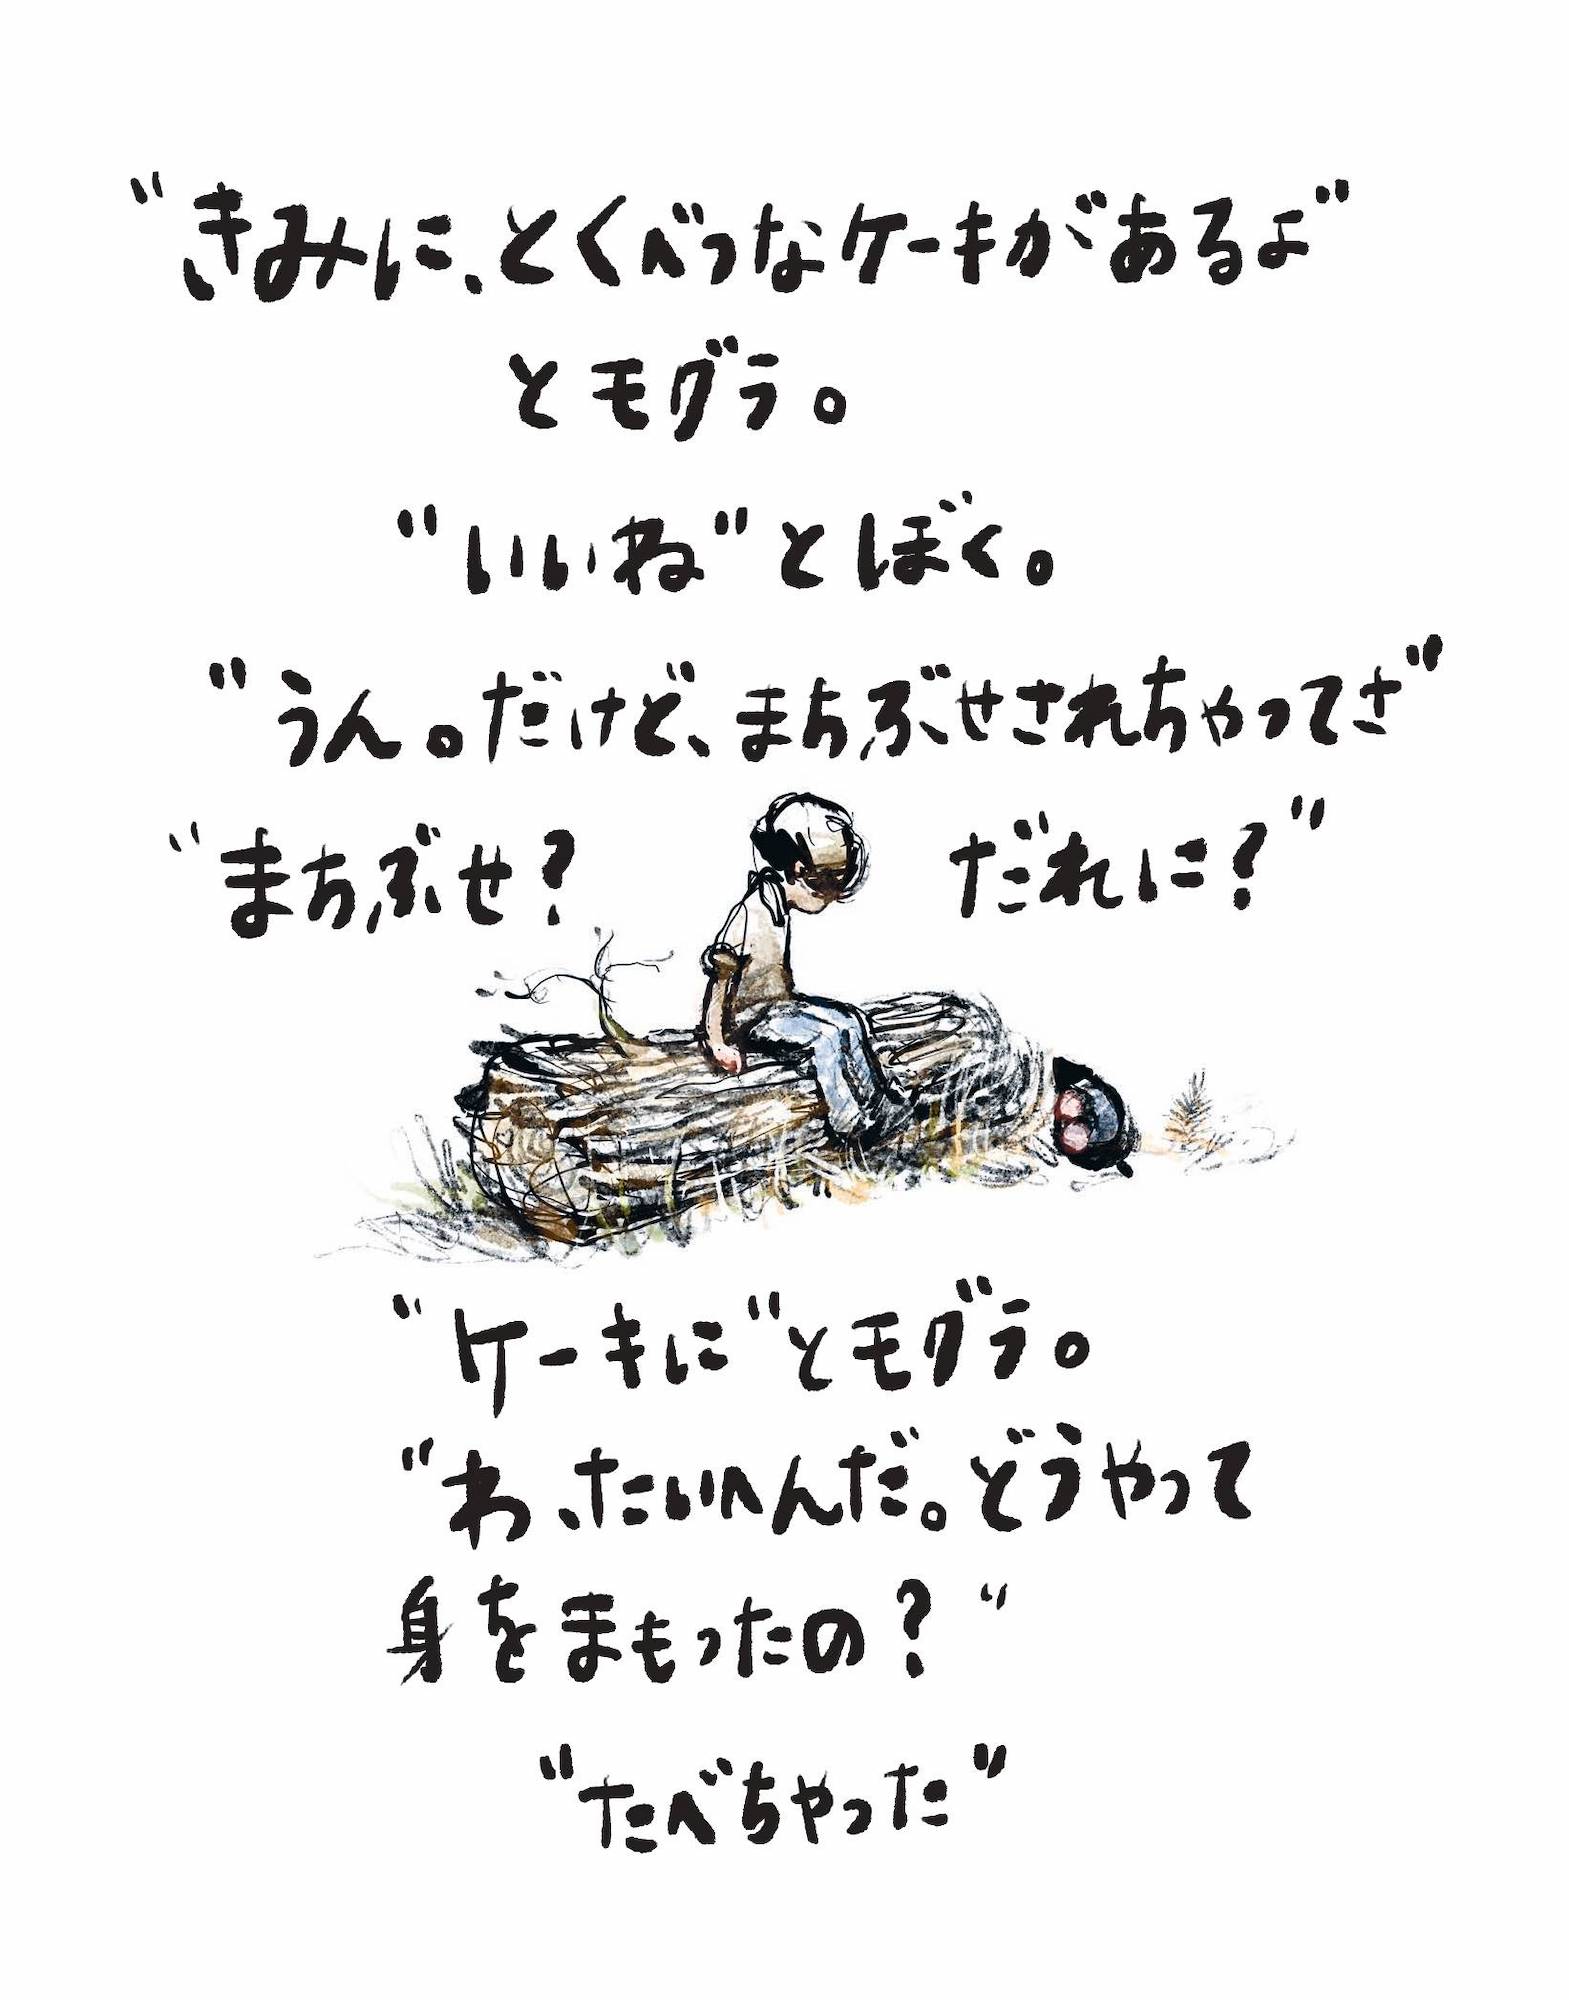 “きみに、とくべつなケーキがあるよ”
とモグラ。
“いいね”とぼく。
“うん。だけど、まちぶせされちゃってさ”
“まちぶせ？ だれに？”
“ケーキに”とモグラ。
“わ、たいへんだ。どうやって
身をまもったの？”
“たべちゃった”